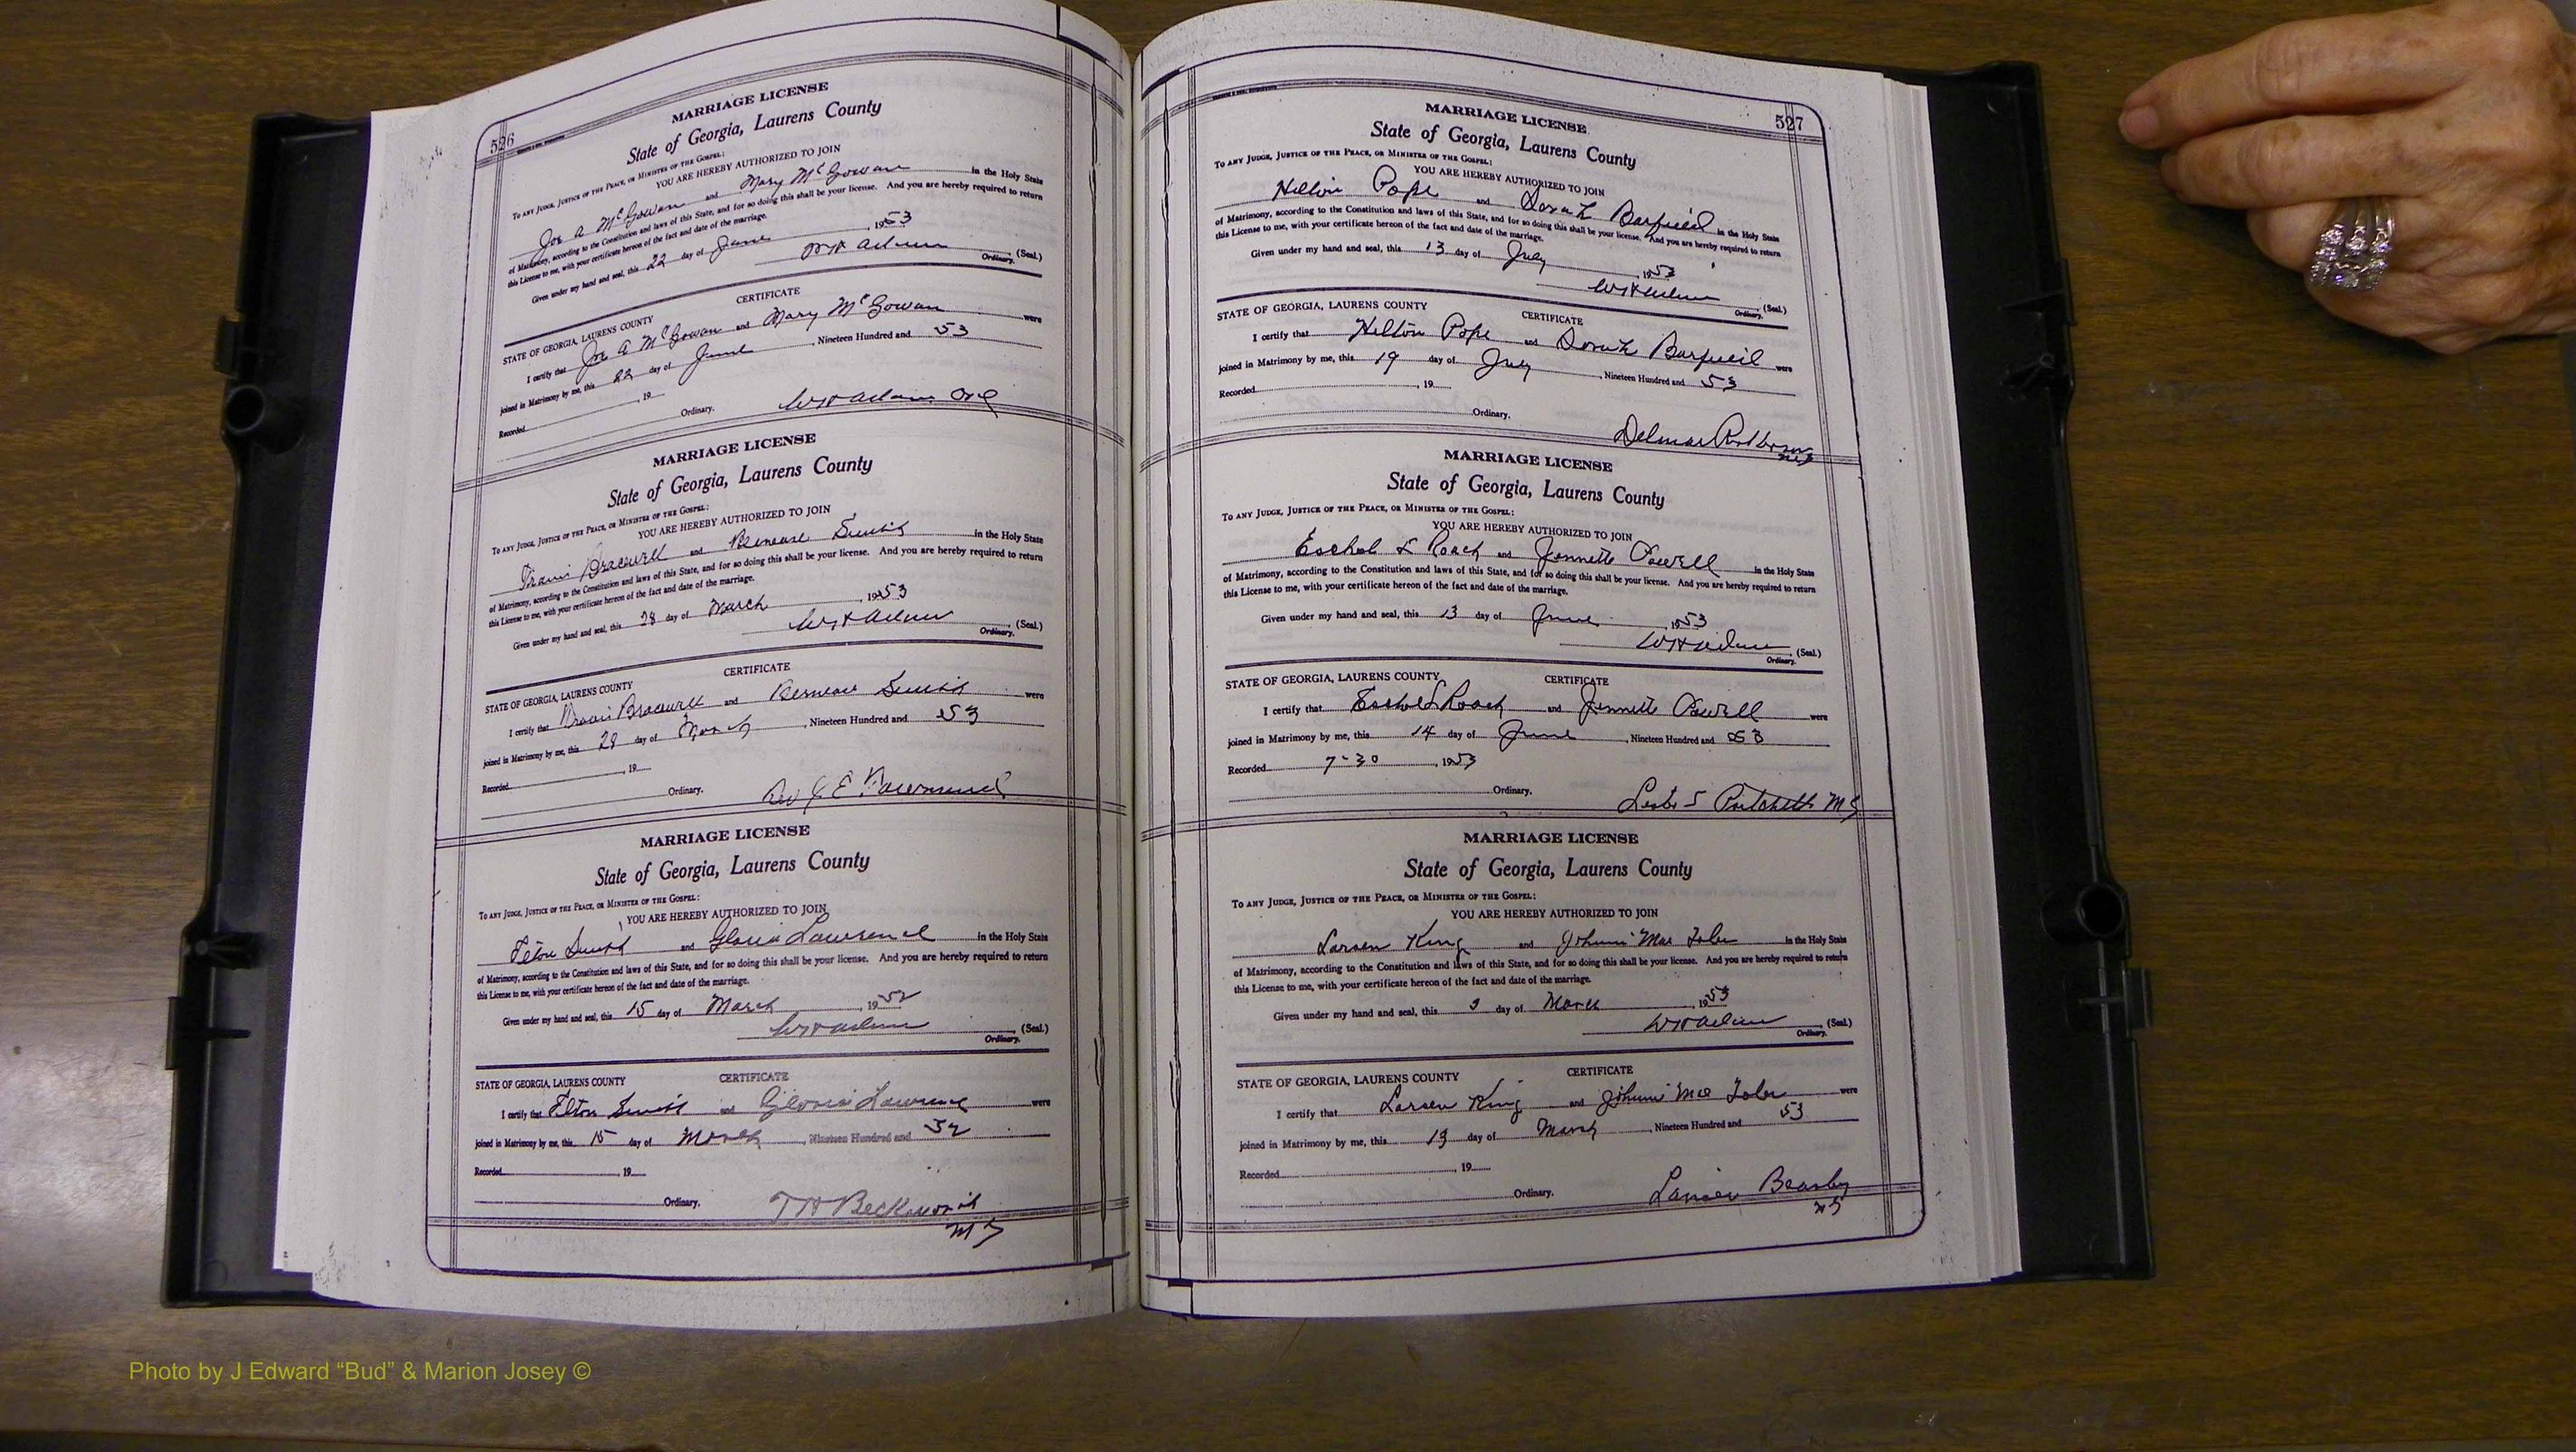 526
MARRIAGE LICENSE
State of Georgia, Laurens County
To ANY JUDGE, JUSTICE OF THE PEACE, OR MINISTER OF THE GOSPEL:
YOU ARE HEREBY AUTHORIZED TO JOIN
Joe A McGowan and Mary McGowan in the Holy State
of Matrimony, according to the Constitution and laws of this State, and for so doing this shall be your license. And you are hereby required to return
this License to me, with your certificate hereon of the fact and date of the marriage.
Given under my hand and seal, this 22 day of June, 1953
WH Adams (Seal.)
Ordinary.
CERTIFICATE
STATE OF GEORGIA, LAURENS COUNTY
I certify that Joe A McGowan and Mary McGowan were
joined in Matrimony by me, this 22 day of June, Nineteen Hundred and 53
Recorded , 19
Ordinary. WH Adams Ord
MARRIAGE LICENSE
State of Georgia, Laurens County
To ANY JUDGE, JUSTICE OF THE PEACE, OR MINISTER OF THE GOSPEL:
YOU ARE HEREBY AUTHORIZED TO JOIN
Bracewell and Smith in the Holy State
of Matrimony, according to the Constitution and laws of this State, and for so doing this shall be your license. And you are hereby required to return
this License to me, with your certificate hereon of the fact and date of the marriage.
Given under my hand and seal, this 28 day of March, 1953
WH Adams (Seal.)
Ordinary.
CERTIFICATE
STATE OF GEORGIA, LAURENS COUNTY
I certify that Bracewell and Smith were
joined in Matrimony by me, this 28 day of March, Nineteen Hundred and 53
Recorded , 19
Ordinary. Rev J E Townsend
MARRIAGE LICENSE
State of Georgia, Laurens County
To ANY JUDGE, JUSTICE OF THE PEACE, OR MINISTER OF THE GOSPEL:
YOU ARE HEREBY AUTHORIZED TO JOIN
Felton Smith and Gloria Lawrence in the Holy State
of Matrimony, according to the Constitution and laws of this State, and for so doing this shall be your license. And you are hereby required to return
this License to me, with your certificate hereon of the fact and date of the marriage.
Given under my hand and seal, this 15 day of March, 1952
WH Adams (Seal.)
Ordinary.
CERTIFICATE
STATE OF GEORGIA, LAURENS COUNTY
I certify that Felton Smith and Gloria Lawrence were
joined in Matrimony by me, this 15 day of March, Nineteen Hundred and 52
Recorded , 19
Ordinary. T H Beckworth
MG
527
MARRIAGE LICENSE
State of Georgia, Laurens County
To ANY JUDGE, JUSTICE OF THE PEACE, OR MINISTER OF THE GOSPEL:
YOU ARE HEREBY AUTHORIZED TO JOIN
Hilton Pope and Dorah Barfield in the Holy State
of Matrimony, according to the Constitution and laws of this State, and for so doing this shall be your license. And you are hereby required to return
this License to me, with your certificate hereon of the fact and date of the marriage.
Given under my hand and seal, this 13 day of July, 1953
WH Adams (Seal.)
Ordinary.
STATE OF GEORGIA, LAURENS COUNTY CERTIFICATE
I certify that Hilton Pope and Dorah Barfield were
joined in Matrimony by me, this 19 day of July, Nineteen Hundred and 53
Recorded , 19
Ordinary.
Delmar
MG
MARRIAGE LICENSE
State of Georgia, Laurens County
To ANY JUDGE, JUSTICE OF THE PEACE, OR MINISTER OF THE GOSPEL:
YOU ARE HEREBY AUTHORIZED TO JOIN
Eschol L Roach and Jennette Powell in the Holy State
of Matrimony, according to the Constitution and laws of this State, and for so doing this shall be your license. And you are hereby required to return
this License to me, with your certificate hereon of the fact and date of the marriage.
Given under my hand and seal, this 13 day of June, 1953
WH Adams (Seal.)
Ordinary.
STATE OF GEORGIA, LAURENS COUNTY CERTIFICATE
I certify that Eschol L Roach and Jennette Powell were
joined in Matrimony by me, this 14 day of June, Nineteen Hundred and 53
Recorded 7-30, 1953
Ordinary. S Pritchett MG
MARRIAGE LICENSE
State of Georgia, Laurens County
To ANY JUDGE, JUSTICE OF THE PEACE, OR MINISTER OF THE GOSPEL:
YOU ARE HEREBY AUTHORIZED TO JOIN
Larsen King and Johnnie Mae in the Holy State
of Matrimony, according to the Constitution and laws of this State, and for so doing this shall be your license. And you are hereby required to return
this License to me, with your certificate hereon of the fact and date of the marriage.
Given under my hand and seal, this 3 day of March, 1953
WH Adams (Seal.)
Ordinary.
CERTIFICATE
STATE OF GEORGIA, LAURENS COUNTY
I certify that Larsen King and Johnnie Mae were
joined in Matrimony by me, this 13 day of March, Nineteen Hundred and 53
Recorded , 19
Ordinary. Lanier Beasley
MG
Photo by J Edward “Bud” & Marion Josey ©